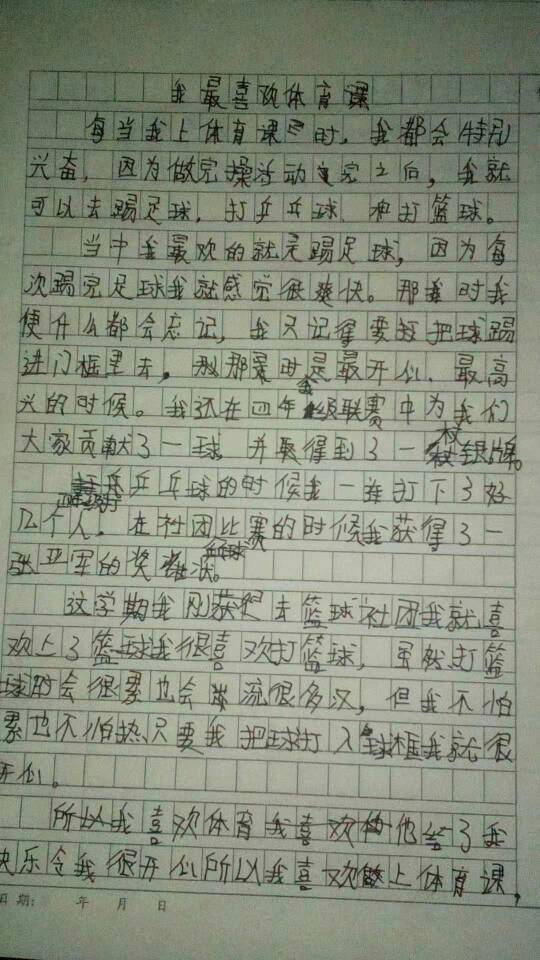 我最喜欢体育课
每当我上体育课时，我都会特别
兴奋，因为做完操活动完之后，我就
可以去踢足球，打乒乓球、和打篮球。
当中我最欢的就是踢足球，因为每
次踢完足球我就感觉很爽快。那时我
便什么都会忘记，我只记得要把球踢
进门框里去，那时是最开心、最高
兴的时候。我还在四年级联赛中为我们
大家贡献了一球，并取得到了一枚银牌。
乒乓球的时候我一连打下了好
几个人，在社团乒乓球比赛的时候我获得了一
张亚军的奖状。
这学期我刚获得去篮球社团我就喜
欢上了篮球我很喜欢打篮球，虽然打篮
球时会很累也会流很多汉，但我不怕
累也不怕热只要我把球打入球框我就很
开心。
所以我喜欢体育我喜欢他给了我
快乐令我很开心所以我喜欢上体育课，
日期: 年 月 日